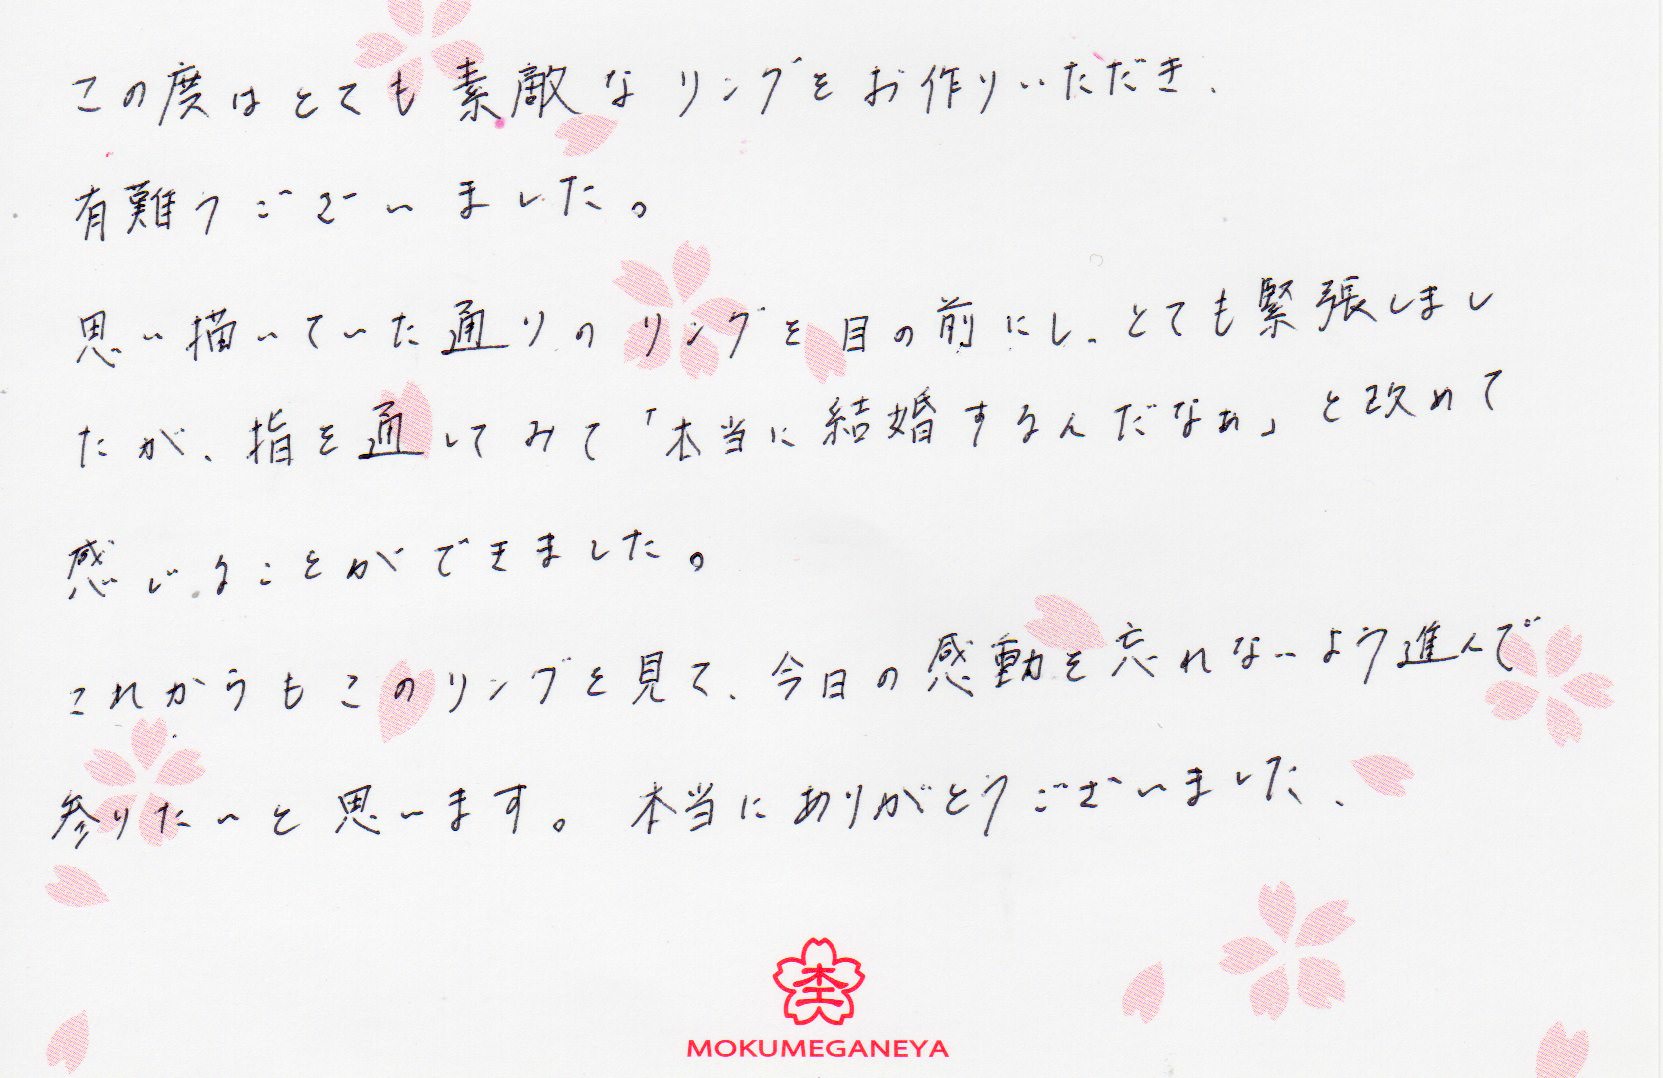 この度はとても素敵なリングをお作りいただき、
有難うございました。
思い描いていた通りのリングを目の前にし、とても緊張しまし
たが、指を通してみて「本当に結婚するんだなぁ」と改めて
感じることができました。
これからもこのリングを見て、今日の感動を忘れないよう進んで
参りたいと思います。本当にありがとうございました、
杢
MOKUMEGANEYA